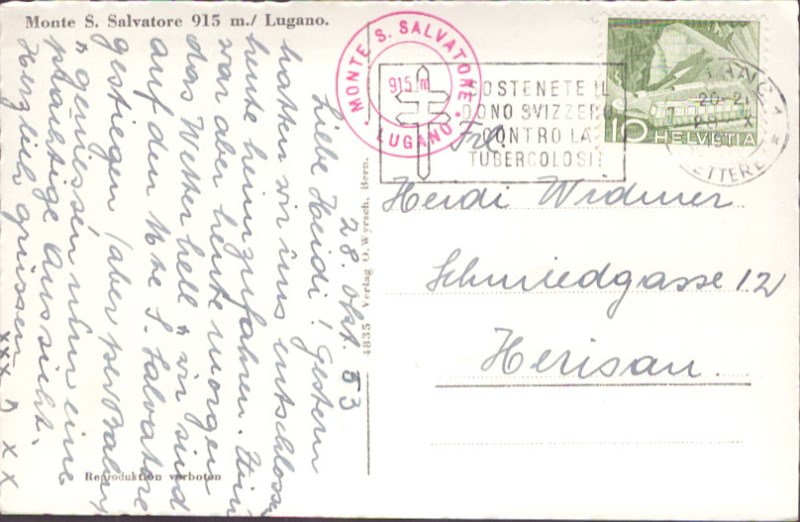 Monte S. Salvatore 915 m./ Lugano.
28. Okt. 53
Liebe Heidi! Gestern
hatten wir uns entschlossen
heute heimzufahren. Nun
war aber heute morgen
das Wetter hell & wir sind
auf den Mte S. Salvatore
gestiegen (aber per Bahn)
& geniessen nun eine
prächtige Aussicht.
Herzlich grüssen
xxx
x x
Reproduktion verboten
4835 Verlag O. Wyrsch, Bern.
MONTE S. SALVATORE
915 m
LUGANO
SOSTENETE IL
DONO SVIZZERO
CONTRO LA
TUBERCOLOSI!
20-21
LETTERE
10 HELVETIA
Frl.
Heidi Widmer
Schmiedgasse 12
Herisau.